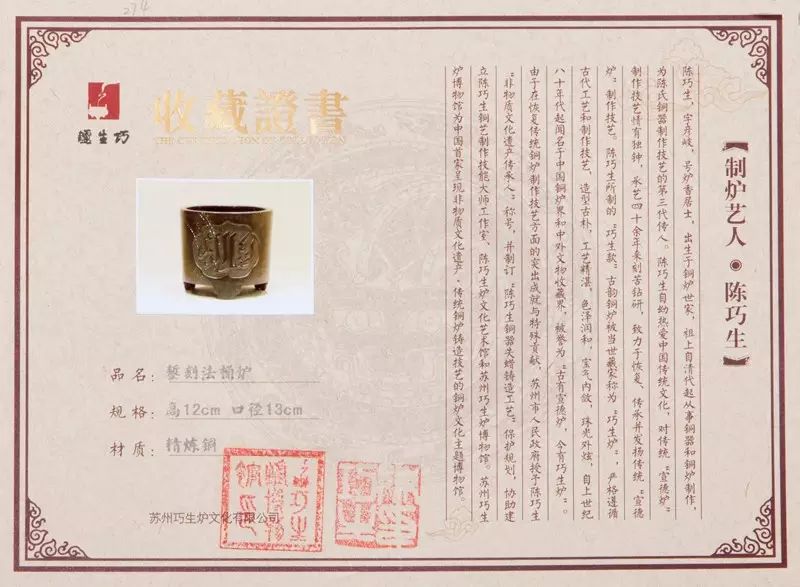 274
炉生巧
收藏證書
品名：錾刻法桶炉
规格：高12cm 口径13cm
材质：精炼铜
苏州巧生炉文化有限公司
【制炉艺人·陈巧生】
陈巧生，字彦岐，号炉香居士，出生于铜炉世家，祖上自清代起从事铜器和铜炉制作，
为陈氏铜器制作技艺的第三代传人。陈巧生自幼热爱中国传统文化，对传统“宣德炉”
制作技艺情有独钟，承艺四十余年来刻苦钻研，致力于恢复、传承并发扬传统“宣德
炉”制作技艺。陈巧生所制的“巧生款”古韵铜炉被当世藏家称为“巧生炉”，严格遵循
古代工艺和制作技艺，造型古朴，工艺精湛，色泽润和，宝气内敛，珠光外炫，自上世纪
八十年代起闻名于中国铜炉界和中外文物收藏界，被誉为“古有宣德炉，今有巧生炉”。
由于在恢复传统铜炉制作技艺方面的突出成就与特殊贡献，苏州市人民政府授予陈巧生
“非物质文化遗产传承人”称号，并制订“陈巧生铜器失蜡铸造工艺”保护规划，协助建
立陈巧生铜艺制作技能大师工作室、陈巧生炉文化艺术馆和苏州巧生炉博物馆。苏州巧生
炉博物馆为中国首家呈现非物质文化遗产·传统铜炉铸造技艺的铜炉文化主题博物馆。